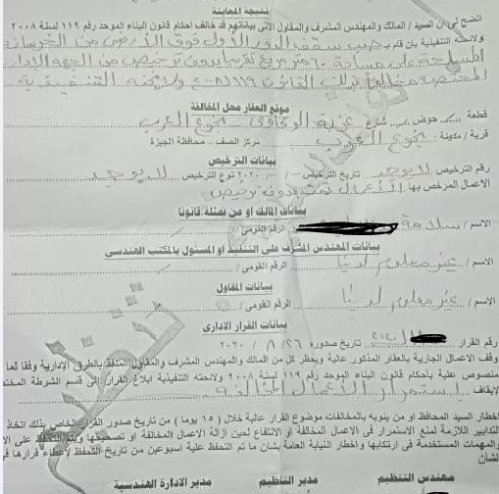 نتيجة المعاينة
اتضح لي ان السيد / المالك والمهندس المشرف والمقاول الاتى بياناتهم قد خالف احكام قانون البناء الموحد رقم ١١٩ لسنة ٢٠٠٨
ولائحته التنفيذية بان قام بـ صب سقف الدور الأول فوق الأرضي من الخرسانة
المسلحة على مساحة ٦٠ متر مربع تقريبا بدون ترخيص من الجهة الإدارية
المختصة مخالفا بذلك القانون ١١٩ / ٢٠٠٨ ولائحته التنفيذية
موقع العقار محل المخالفة
قطعة حوض شارع عزبة
قرية / مدينة مركز الصف - محافظة الجيزة
بيانات الترخيص
رقم الترخيص لا يوجد تاريخ الترخيص / / ٢٠٢٠ نوع الترخيص لا يوجد
الاعمال المرخص بها الأعمال تمت بدون ترخيص
بيانات المالك او من يمثله قانونا
الاسم / سلامة الرقم القومى /
بيانات المهندس المشرف على التنفيذ او المسئول بالمكتب الهندسى
الاسم / غير معلوم لدينا الرقم القومى /
بيانات المقاول
الاسم / غير معلوم لدينا الرقم القومى /
بيانات القرار الادارى
رقم القرار تاريخ صدوره ٢٦ / ٨ / ٢٠٢٠
وقف الاعمال الجارية بالعقار المذكور عالية ويحظر كل من المالك والمهندس المشرف والمقاول المنفذ بالطرق الادارية وفقا لما
منصوص علية باحكام قانون البناء الموحد رقم ١١٩ لسنة ٢٠٠٨ ولائحته التنفيذية ابلاغ القرار الى قسم الشرطة المخت
لايقاف استمرار الأعمال المخالفة
اخطار السيد المحافظ او من ينوبه بالمخالفات موضوع القرار عالية خلال ( ١٥ يوما ) من تاريخ صدور القرار الخاص بذلك اتخاذ
التدابير اللازمة لمنع الاستمرار فى الاعمال المخالفة او الانتفاع لحين ازالة الاعمال المخالفة او تصحيحها ويتم التحفظ على الا
والمهمات المستخدمة فى ارتكابها واخطار النيابة العامة بشان ما تم التحفظ علية اسبوعين من تاريخ التحفظ لاعطاء قرارها فى
لشأن
مهندس التنظيم مدير التنظيم مدير الادارة الهندسية